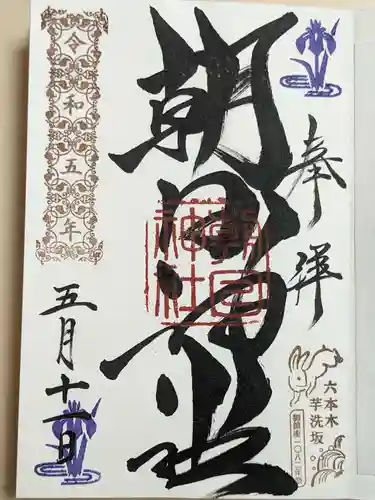 奉拝
六本木
芋洗坂
朝日神社
朝日神社
令和五年
五月十一日